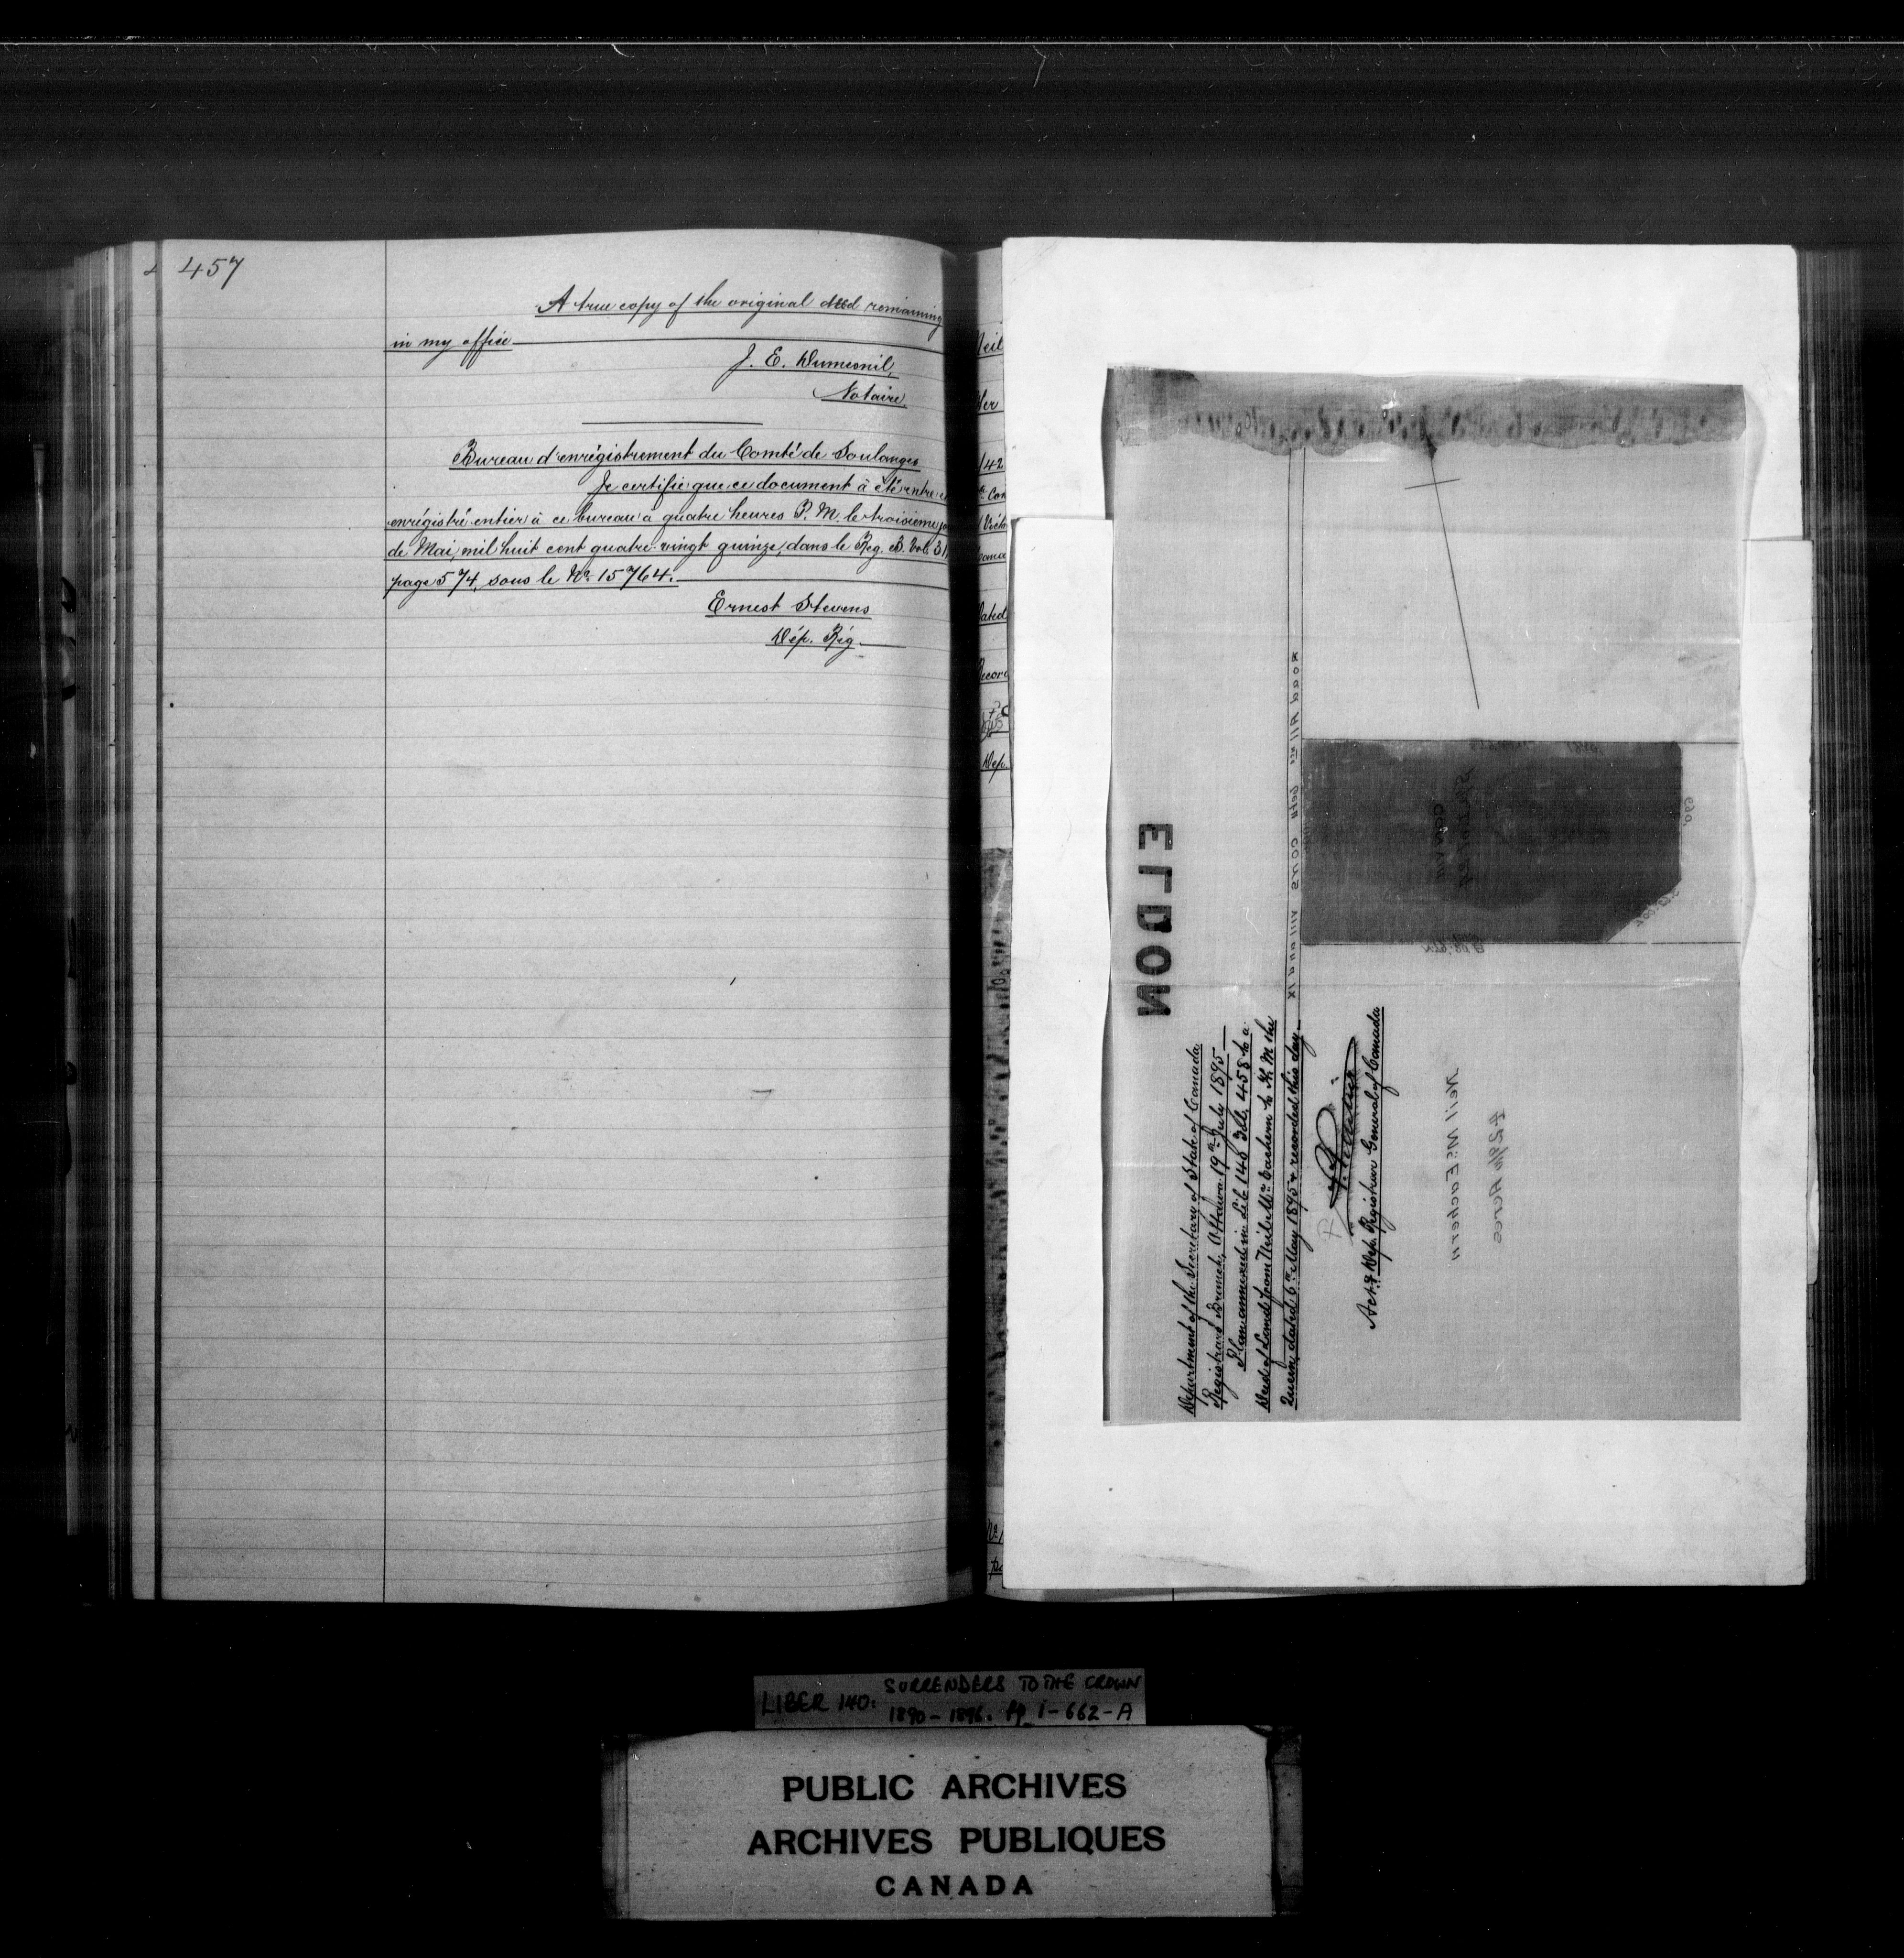 457
A true copy of the original deed remaining
in my office
J. E. Dumesnil,
Notaire.
Bureau d'enrégistrement du Comté de Soulanges
Je certifie que ce document à été entré e
enrégistré entier à ce bureau à quatre heures P. M. le troisieme jo
de Mai, mil huit cent quatre-vingt quinze, dans le Reg. B. Vol. 31,
page 574, sous le No 15764.
Ernest Stevens
Dép. Rég.
Neil
Her
142
Con
Vict
Cana
Dated
Record
Dep.
ELDON
Department of the Secretary of State of Canada
Registrar's Branch, Ottawa 19th July 1895
Plan annexed in Lib 140 Fol. 458 to a
Deed of Land from Neil McEachern to H. M. the
Queen, dated 6th May 1895 & recorded this day.
Actg Dep. Registrar General of Canada
Road All'ce betn CONS VIII and IX
CON VIII
Neil McEachern
Acres
LIBER 140: SURRENDERS TO THE CROWN
1890-1896. pp i-662-A
PUBLIC ARCHIVES
ARCHIVES PUBLIQUES
CANADA